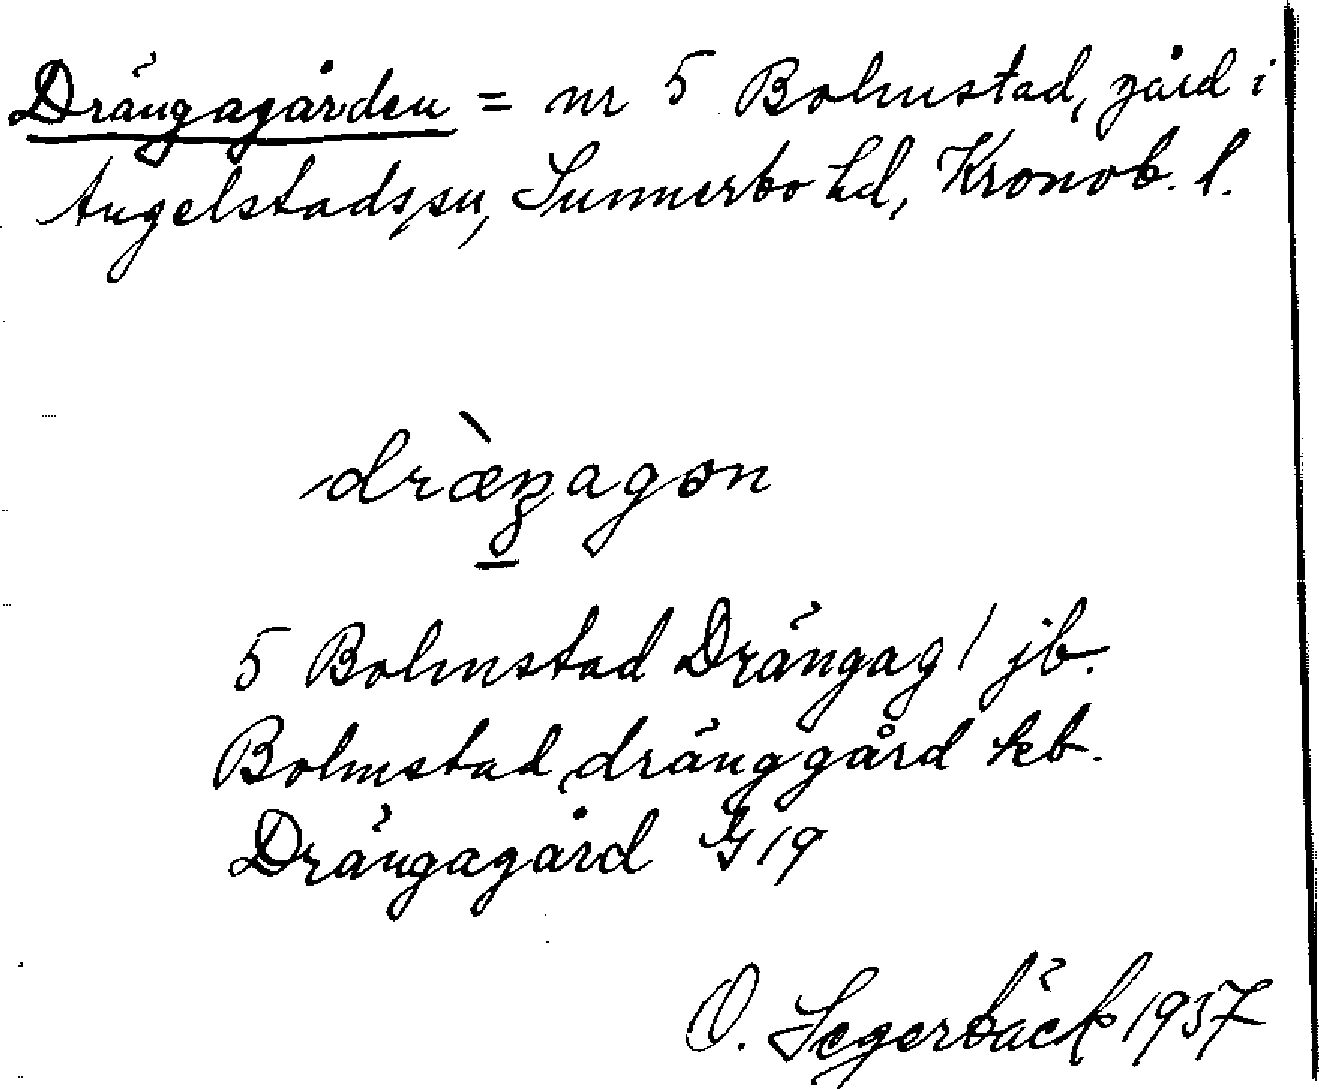 Drängagården = nr 5 Bolmstad, gård i
Angelstads sn, Sunnerbo hd, Kronob. l.
dræ̀ŋagɷn
5 Bolmstad Drängag/ jb.
Bolmstad, dränggård kb.
Drängagård G 19
O. Segerbäck 1937